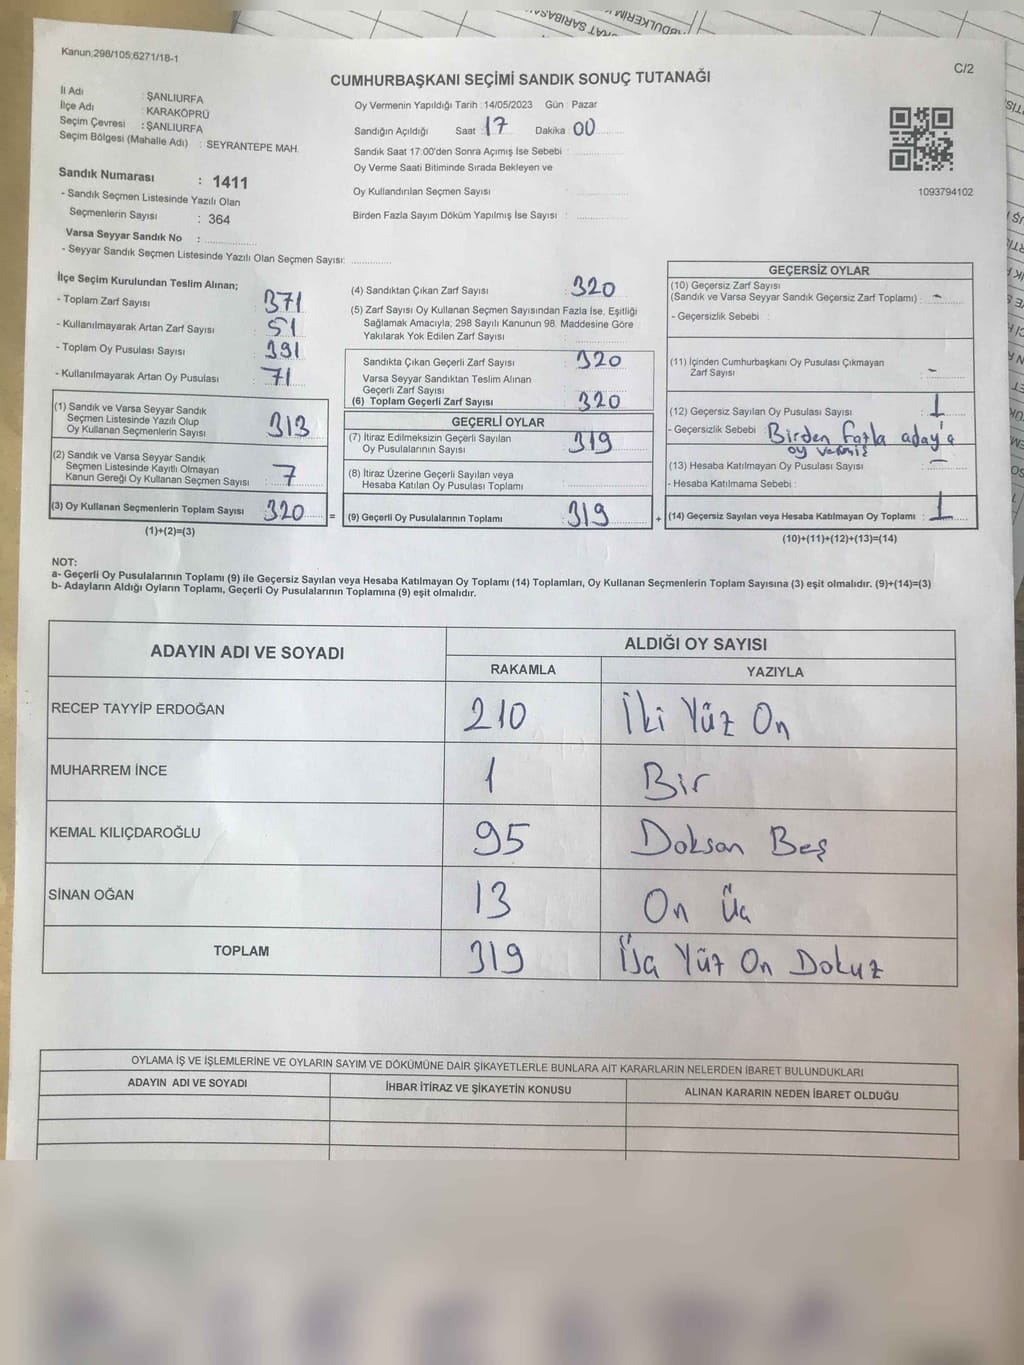 Kanun;298/105;6271/18-1
C/2
CUMHURBAŞKANI SEÇİMİ SANDIK SONUÇ TUTANAĞI
İl Adı : ŞANLIURFA
İlçe Adı : KARAKÖPRÜ
Seçim Çevresi : ŞANLIURFA
Seçim Bölgesi (Mahalle Adı) : SEYRANTEPE MAH.
Sandık Numarası : 1411
- Sandık Seçmen Listesinde Yazılı Olan
Seçmenlerin Sayısı : 364
Varsa Seyyar Sandık No :
- Seyyar Sandık Seçmen Listesinde Yazılı Olan Seçmen Sayısı:
Oy Vermenin Yapıldığı Tarih : 14/05/2023 Gün : Pazar
Sandığın Açıldığı Saat : 17 Dakika : 00
Sandık Saat 17:00'den Sonra Açımış İse Sebebi :
Oy Verme Saati Bitiminde Sırada Bekleyen ve
Oy Kullandırılan Seçmen Sayısı :
Birden Fazla Sayım Döküm Yapılmış İse Sayısı :
1093794102
İlçe Seçim Kurulundan Teslim Alınan;
- Toplam Zarf Sayısı : 371
- Kullanılmayarak Artan Zarf Sayısı : 51
- Toplam Oy Pusulası Sayısı : 391
- Kullanılmayarak Artan Oy Pusulası : 71
(1) Sandık ve Varsa Seyyar Sandık
Seçmen Listesinde Yazılı Olup
Oy Kullanan Seçmenlerin Sayısı : 313
(2) Sandık ve Varsa Seyyar Sandık
Seçmen Listesinde Kayıtlı Olmayan
Kanun Gereği Oy Kullanan Seçmen Sayısı : 7
(3) Oy Kullanan Seçmenlerin Toplam Sayısı : 320 =
(1)+(2)=(3)
(4) Sandıktan Çıkan Zarf Sayısı : 320
(5) Zarf Sayısı Oy Kullanan Seçmen Sayısından Fazla İse, Eşitliği
Sağlamak Amacıyla; 298 Sayılı Kanunun 98. Maddesine Göre
Yakılarak Yok Edilen Zarf Sayısı :
Sandıkta Çıkan Geçerli Zarf Sayısı : 320
Varsa Seyyar Sandıktan Teslim Alınan
Geçerli Zarf Sayısı :
(6) Toplam Geçerli Zarf Sayısı : 320
GEÇERLİ OYLAR
(7) İtiraz Edilmeksizin Geçerli Sayılan
Oy Pusulalarının Sayısı : 319
(8) İtiraz Üzerine Geçerli Sayılan veya
Hesaba Katılan Oy Pusulası Toplamı :
(9) Geçerli Oy Pusulalarının Toplamı : 319 +
GEÇERSİZ OYLAR
(10) Geçersiz Zarf Sayısı
(Sandık ve Varsa Seyyar Sandık Geçersiz Zarf Toplamı) : -
- Geçersizlik Sebebi :
(11) İçinden Cumhurbaşkanı Oy Pusulası Çıkmayan
Zarf Sayısı : -
(12) Geçersiz Sayılan Oy Pusulası Sayısı : 1
- Geçersizlik Sebebi : Birden fazla aday'a
oy vermiş
(13) Hesaba Katılmayan Oy Pusulası Sayısı : -
- Hesaba Katılmama Sebebi :
(14) Geçersiz Sayılan veya Hesaba Katılmayan Oy Toplamı : 1
(10)+(11)+(12)+(13)=(14)
NOT:
a- Geçerli Oy Pusulalarının Toplamı (9) ile Geçersiz Sayılan veya Hesaba Katılmayan Oy Toplamı (14) Toplamları, Oy Kullanan Seçmenlerin Toplam Sayısına (3) eşit olmalıdır. (9)+(14)=(3)
b- Adayların Aldığı Oyların Toplamı, Geçerli Oy Pusulalarının Toplamına (9) eşit olmalıdır.
ADAYIN ADI VE SOYADI
ALDIĞI OY SAYISI
RAKAMLA YAZIYLA
RECEP TAYYİP ERDOĞAN 210 İki Yüz On
MUHARREM İNCE 1 Bir
KEMAL KILIÇDAROĞLU 95 Doksan Beş
SİNAN OĞAN 13 On Üç
TOPLAM 319 Üç Yüz On Dokuz
OYLAMA İŞ VE İŞLEMLERİNE VE OYLARIN SAYIM VE DÖKÜMÜNE DAİR ŞİKAYETLERLE BUNLARA AİT KARARLARIN NELERDEN İBARET BULUNDUKLARI
ADAYIN ADI VE SOYADI İHBAR İTİRAZ VE ŞİKAYETİN KONUSU ALINAN KARARIN NEDEN İBARET OLDUĞU